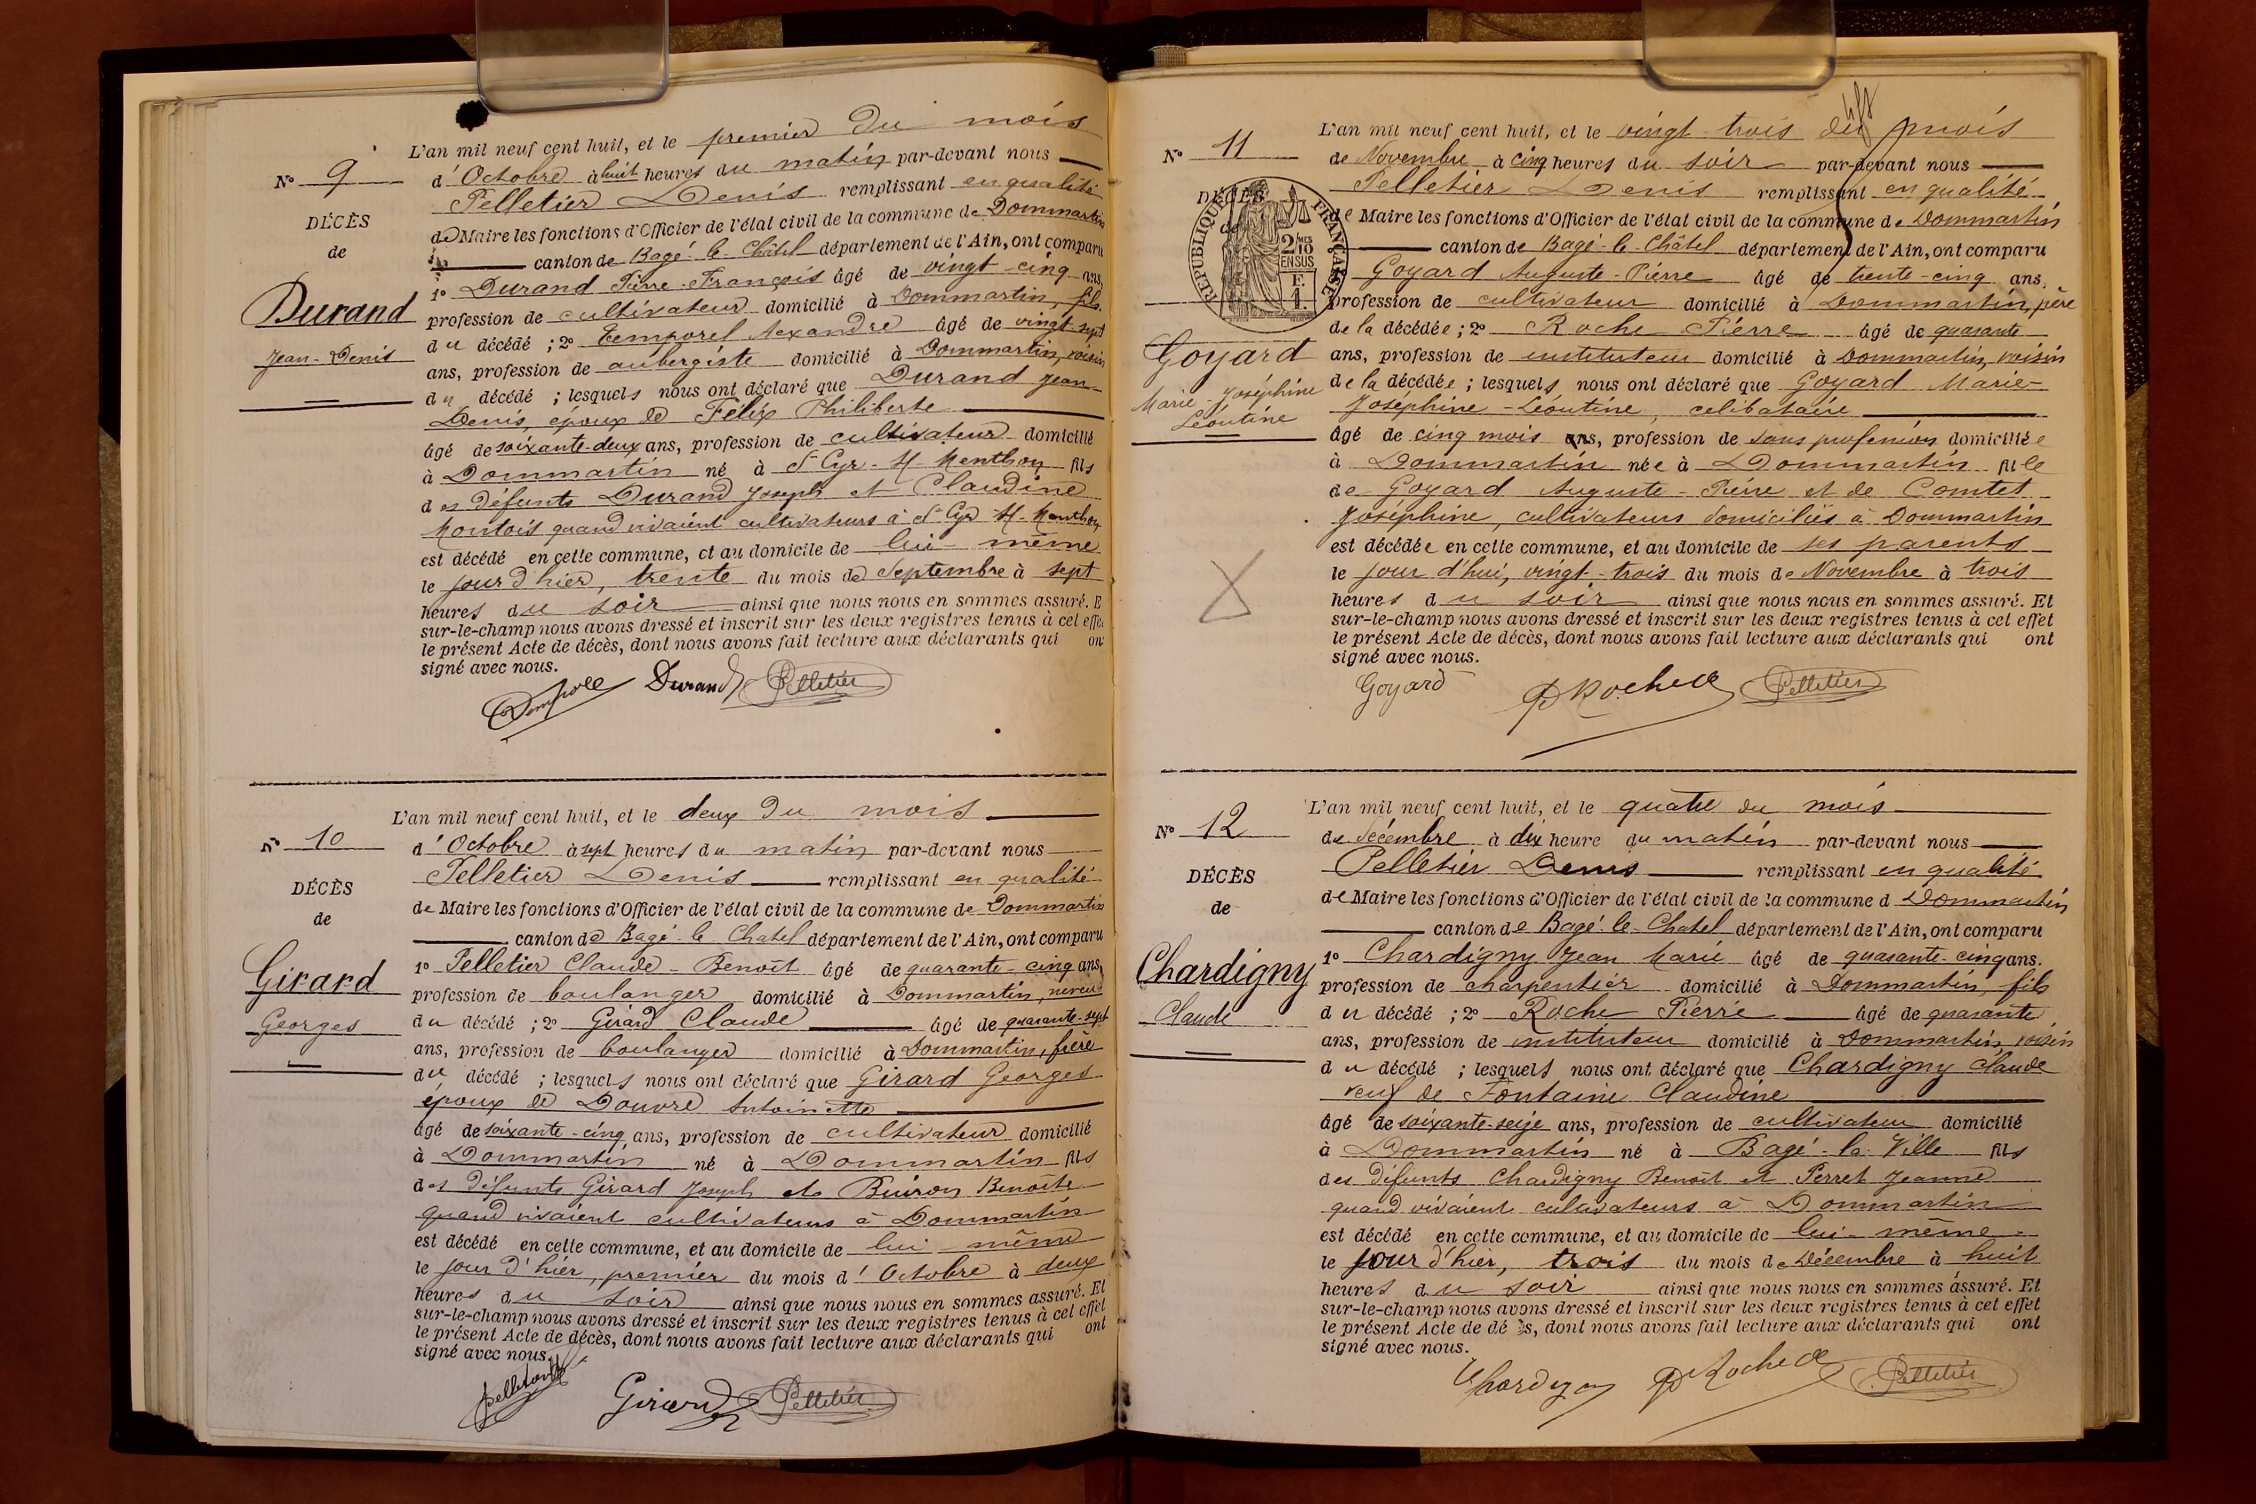 L'an mil neuf cent huit, et le premier du mois
N° 9
d'Octobre à huit heures du matin par-devant nous
Pelletier Denis remplissant en qualité
DÉCÈS
de Maire les fonctions d'Officier de l'état civil de la commune de Dommartin
de
canton de Bagé-le-Châtel département de l'Ain, ont comparu
1° Durand Pierre-François âgé de vingt-cinq ans,
Durand
profession de cultivateur domicilié à Dommartin, fils
du décédé ; 2° Temporel Alexandre âgé de vingt-sept
Jean-Denis
ans, profession de aubergiste domicilié à Dommartin, voisin
du décédé ; lesquels nous ont déclaré que Durand Jean-
Denis, époux de Félix Philiberte
âgé de soixante-deux ans, profession de cultivateur domicilié
à Dommartin né à St Cyr-s-Menthon fils
des défunts Durand Joseph et Claudine
Montois quand vivaient cultivateurs à St Cyr-s-Menthon
est décédé en cette commune, et au domicile de lui-même
le jour d'hier, trente du mois de Septembre à sept
heures du soir ainsi que nous nous en sommes assuré. E
sur-le-champ nous avons dressé et inscrit sur les deux registres tenus à cet effet
le présent Acte de décès, dont nous avons fait lecture aux déclarants qui on
signé avec nous.
Durand Pelletier
L'an mil neuf cent huit, et le deux du mois
N° 10
d'Octobre à sept heures du matin par-devant nous
Pelletier Denis remplissant en qualité
DÉCÈS
de Maire les fonctions d'Officier de l'état civil de la commune de Dommartin
de
canton de Bagé-le-Chatel département de l'Ain, ont comparu
1° Pelletier Claude-Benoît âgé de quarante-cinq ans,
Girard
profession de boulanger domicilié à Dommartin, neveu
Georges
du décédé ; 2° Girard Claude âgé de quarante-sept
ans, profession de boulanger domicilié à Dommartin, frère
du décédé ; lesquels nous ont déclaré que Girard Georges
époux de Douvre Antoinette
âgé de soixante-cinq ans, profession de cultivateur domicilié
à Dommartin né à Dommartin fils
des défunts Girard Joseph et Buiron Benoîte
quand vivaient cultivateurs à Dommartin
est décédé en cette commune, et au domicile de lui-même
le jour d'hier, premier du mois d'Octobre à deux
heures du soir ainsi que nous nous en sommes assuré. Et
sur-le-champ nous avons dressé et inscrit sur les deux registres tenus à cet effet
le présent Acte de décès, dont nous avons fait lecture aux déclarants qui ont
signé avec nous.
Girard Pelletier
L'an mil neuf cent huit, et le vingt-trois du mois
N° 11
de Novembre à cinq heures du soir par-devant nous
Pelletier Denis remplissant en qualité
DÉCÈS
de Maire les fonctions d'Officier de l'état civil de la commune de Dommartin
de
canton de Bagé-le-Châtel département de l'Ain, ont comparu
RÉPUBLIQUE FRANÇAISE
2/10 MES
EN SUS
F.
1.
Goyard Auguste-Pierre âgé de trente-cinq ans.
profession de cultivateur domicilié à Dommartin, père
de la décédée ; 2° Roche Pierre âgé de quarante
Goyard
ans, profession de instituteur domicilié à Dommartin, voisin
Marie-Joséphine
de la décédée ; lesquels nous ont déclaré que Goyard Marie-
Léoutine
Joséphine-Léoutine, celibataire
âgé de cinq mois ans, profession de sans profession domiciliée
à Dommartin née à Dommartin fille
de Goyard Auguste-Pierre et de Comtet
Joséphine, cultivateurs domiciliés à Dommartin
est décédée en cette commune, et au domicile de ses parents
le jour d'hui, vingt-trois du mois de Novembre à trois
heures du soir ainsi que nous nous en sommes assuré. Et
sur-le-champ nous avons dressé et inscrit sur les deux registres tenus à cet effet
le présent Acte de décès, dont nous avons fait lecture aux déclarants qui ont
signé avec nous.
Goyard P Roche Pelletier
L'an mil neuf cent huit, et le quatre du mois
N° 12
de Décembre à dix heure du matin par-devant nous
Pelletier Denis remplissant en qualité
DÉCÈS
de Maire les fonctions d'Officier de l'état civil de la commune d Dommartin
de
canton de Bagé-le-Chatel département de l'Ain, ont comparu
1° Chardigny Jean Marie âgé de quarante-cinq ans.
Chardigny
profession de charpentier domicilié à Dommartin, fils
Claude
du décédé ; 2° Roche Pierre âgé de quarante
ans, profession de instituteur domicilié à Dommartin, voisin
du décédé ; lesquels nous ont déclaré que Chardigny Claude
veuf de Fontaine Claudine
âgé de soixante-seize ans, profession de cultivateur domicilié
à Dommartin né à Bagé-la-Ville fils
des défunts Chardigny Benoît et Perret Jeanne
quand vivaient cultivateurs à Dommartin
est décédé en cette commune, et au domicile de lui-même
le jour d'hier, trois du mois de Décembre à huit
heures du soir ainsi que nous nous en sommes assuré. Et
sur-le-champ nous avons dressé et inscrit sur les deux registres tenus à cet effet
le présent Acte de dé s, dont nous avons fait lecture aux déclarants qui ont
signé avec nous.
Chardigny P Roche Pelletier